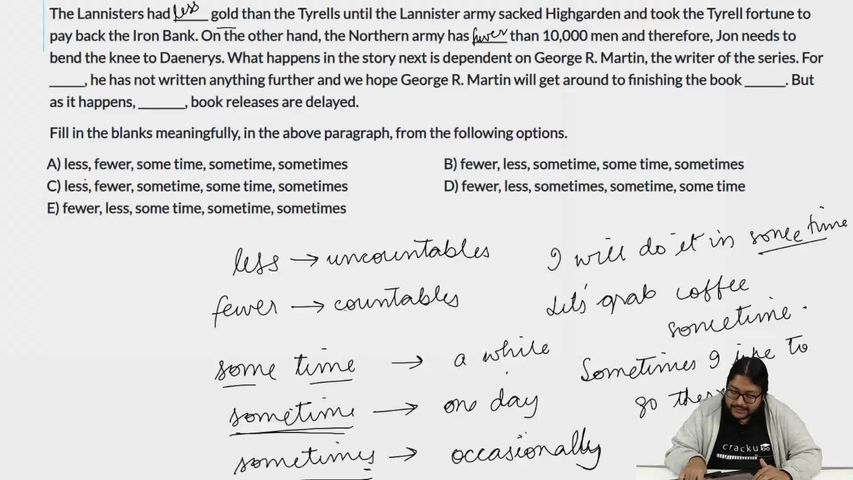 The Lannisters had less gold than the Tyrells until the Lannister army sacked Highgarden and took the Tyrell fortune to
pay back the Iron Bank. On the other hand, the Northern army has fewer than 10,000 men and therefore, Jon needs to
bend the knee to Daenerys. What happens in the story next is dependent on George R. Martin, the writer of the series. For
_____, he has not written anything further and we hope George R. Martin will get around to finishing the book ______. But
as it happens, _______, book releases are delayed.
Fill in the blanks meaningfully, in the above paragraph, from the following options.
A) less, fewer, some time, sometime, sometimes
B) fewer, less, sometime, some time, sometimes
C) less, fewer, sometime, some time, sometimes
D) fewer, less, sometimes, sometime, some time
E) fewer, less, some time, sometime, sometimes
less → uncountables
fewer → countables
some time → a while
sometime → one day
sometimes → occasionally
I will do it in some time
Let's grab coffee
sometime.
Sometimes I to
go
cracku